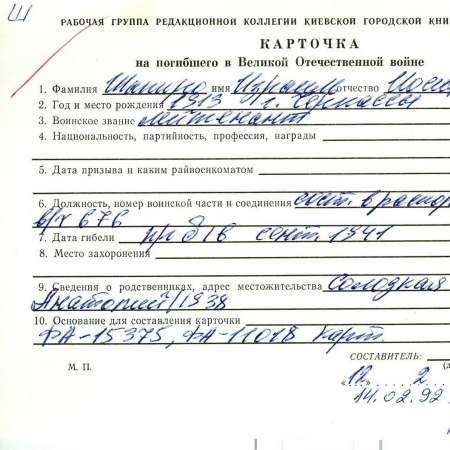 Ш
РАБОЧАЯ ГРУППА РЕДАКЦИОННОЙ КОЛЛЕГИИ КИЕВСКОЙ ГОРОДСКОЙ КНИ
КАРТОЧКА
на погибшего в Великой Отечественной войне
1. Фамилия Шапиро имя Израиль отчество Иос
2. Год и место рождения 1913 г. Черкассы
3. Воинское звание лейтенант
4. Национальность, партийность, профессия, награды
5. Дата призыва и каким райвоенкоматом
6. Должность, номер воинской части и соединения сост. в распор
в/ч 676
7. Дата гибели пр б/в сент. 1941
8. Место захоронения
9. Сведения о родственниках, адрес местожительства Солодкая
Анаторий/1938
10. Основание для составления карточки
ФА-15375, ФА-11018 карт.
СОСТАВИТЕЛЬ:
М. П.
«12» 2
14.02.92